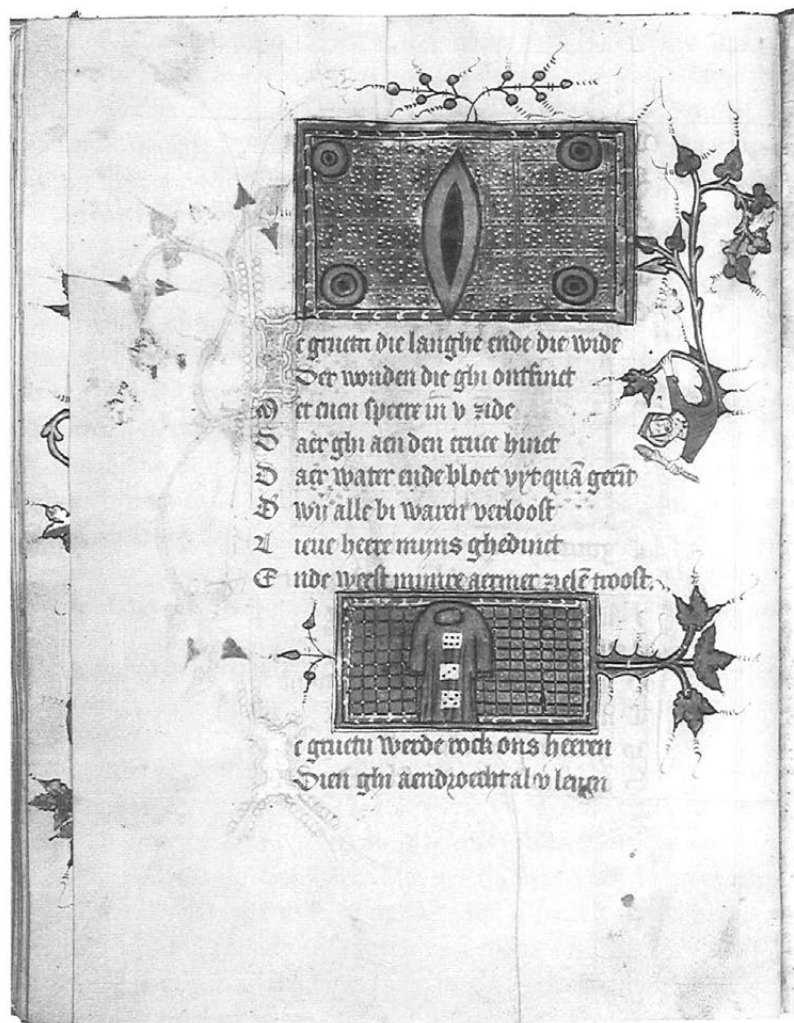 c gruetu die langhe ende die wide
Der wonden die ghi ontfinct
Met enen speere in v zide
Daer ghi aen den cruce hinct
Daer water ende bloet vyt quā gerēt
D wij alle bi waren verloost
Lieue heere mijns ghedinct
Ende weest mijnre aermer zielē troost.
c gruetu werde rock ons heeren
Dien ghi aendroecht al v leuen